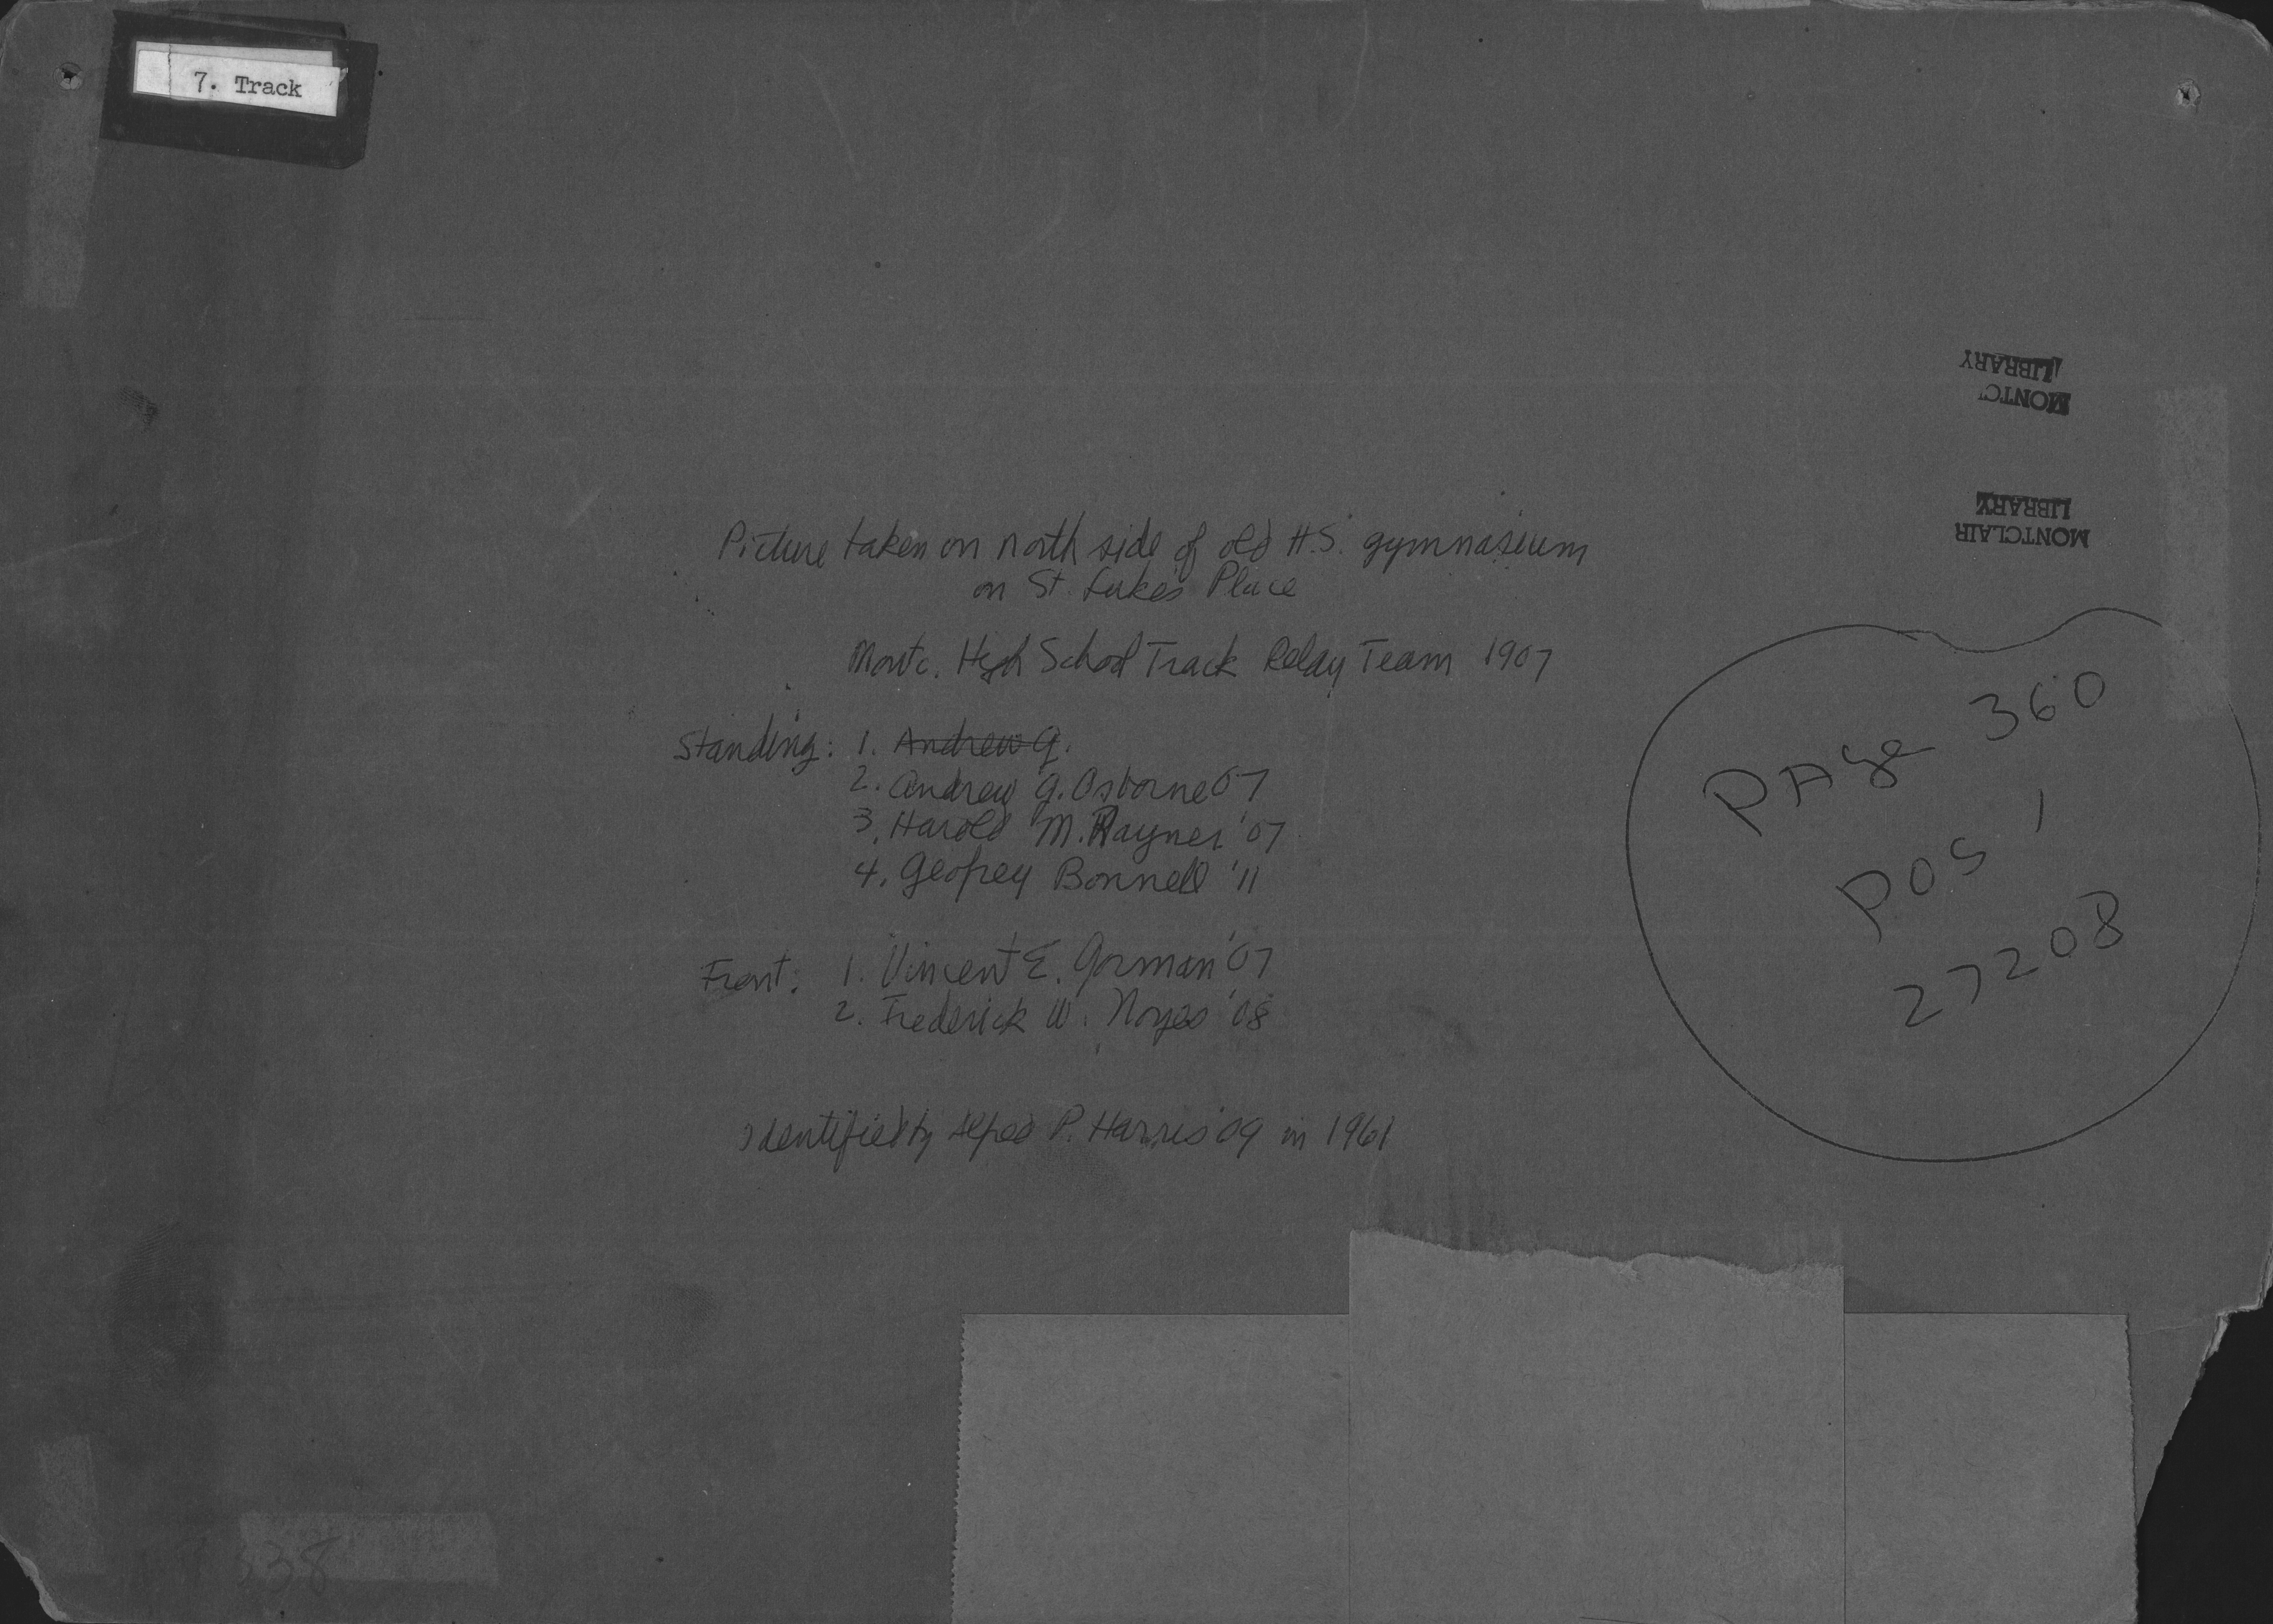 7. Track
LIBRARY
MONTC
LIBRARY
MONTCLAIR
Picture taken on north side of old H.S. gymnasium
on St. Luke's Place
Montc. High School Track Relay Team 1907
Standing: 1. Andrew G.
2. Andrew G. Osborne 07
3. Harold M. Rayner '07
4. Geofrey Bonnell '11
Front: 1. Vincent E. Gorman '07
2. Frederick W. Noyes '08
Identified by Alfred P. Harris '09 in 1961
PAge 360
POS 1
27208
338